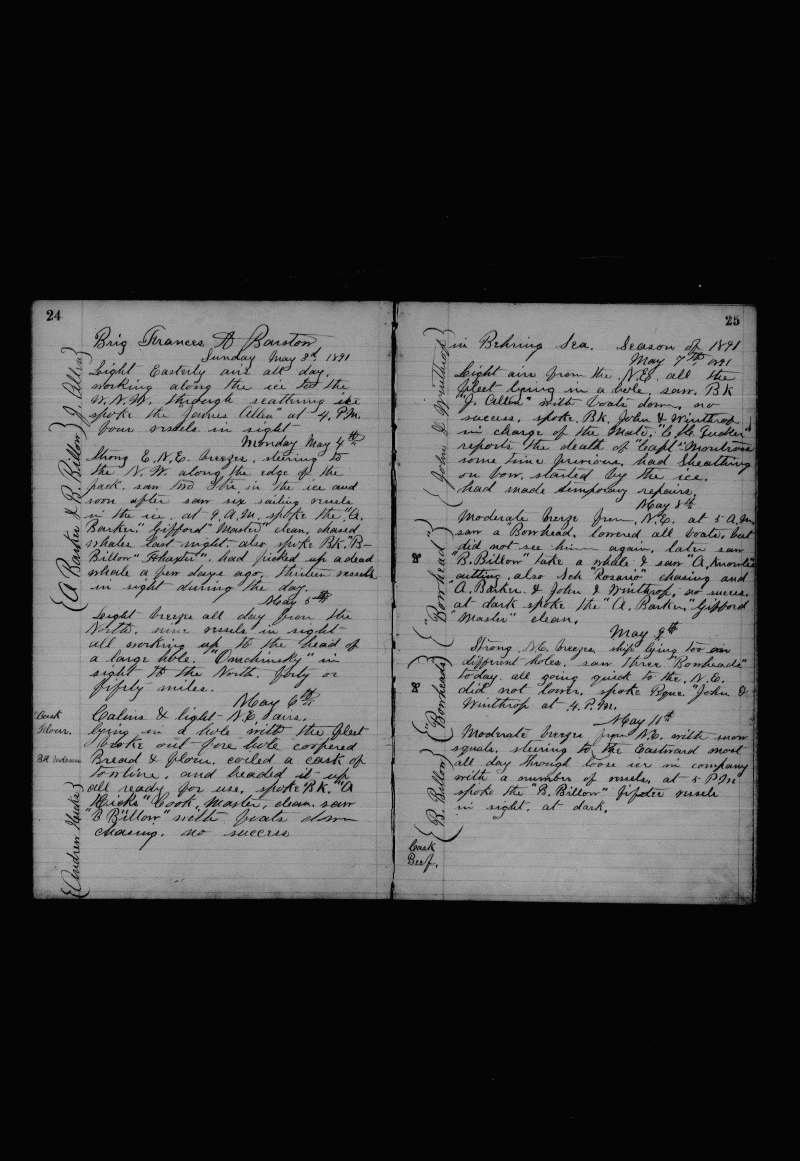 24
Brig Frances A Barstow
Sunday May 3d 1891
Light Easterly airs all day,
working along the ice to the
W.N.W. through scattering ice
spoke the "James Allen" at 4. P.M.
four vessels in sight
Monday May 4th
Strong E.N.E. breezes, steering to
the N.W. along the edge of the
pack. saw two in the ice and
soon after saw six sailing vessels
in the ice. at 9. A.M. spoke the "A.
Barker." Gifford "Master" clean, chased
whales last night. also spoke Bk. "B-
Billow" had picked up a dead
whale a few days ago. thirteen vessels
in sight during the day.
May 5th
Light breeze all day from the
North. nine vessels in sight
all working up to the head of
a large hole. "Omchinsky" in
sight to the North. forty or
fifty miles.
May 6th
Calms & light N.E. airs.
lying in a hole with the fleet
broke out fore hole coopered
Bread & flour. coiled a cask of
towline, and headed it up
all ready for use, spoke Bk. "A
Hicks" Cook. Master, clean. saw
"B Billow" with boats down
chasing. no success
{J. Allen}
{A Barker & B. Billow}
Cask
Flour.
{Andrew Hicks}
25
in Behring Sea. Season of 1891
May 7th 1891
Light airs from the N.E. all the
fleet lying in a hole. saw. Bk
"J. Allen" with boats down, no
success. spoke. Bk. John & Winthrop
in charge of the Mate. "C. H. Tucker"
reports the death of "Capt" Montross
some time previous. had Sheathing
on bow. started by the ice.
had made temporary repairs.
May 8th
Moderate breeze from N.E. at 5 A.M.
saw a Bowhead. lowered all boats. but
did not see him again. later saw
"B. Billow" take a whale & saw "A. Knowles"
cutting. also Sch "Rosario" chasing and
A. Barker & John & Winthrop. no success.
at dark spoke the "A. Barker." Gifford
"Master" clean.
May 9th
Strong N.E. breezes. ship lying too in
different holes. saw three "Bowheads"
today. all going quick to the N.E.
did not lower. spoke Bque "John &
Winthrop at 4. P.M.
May 10th
Moderate breeze from N.E. with snow
squals. steering to the Eastward most
all day through loose ice in company
with a number of vessels. at 5 P.M.
spoke the "B. Billow" fifteen vessels
in sight. at dark.
{John & Winthrop}
{"Bowhead"}
{Bowheads}
{B. Billow}
Cask
Beef.